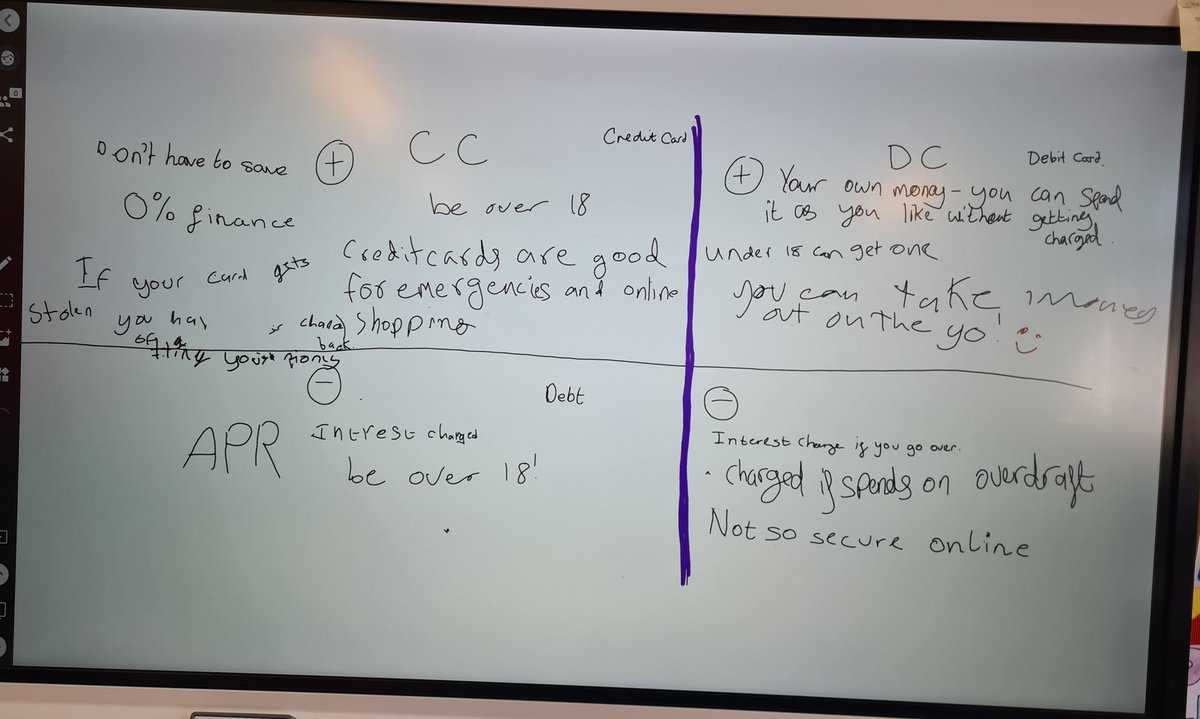 CC
Credit Card
Don't have to save
+
0% finance
be over 18
If your card gets
stolen you hav
chang
back
of
your
Creditcards are good
for emergencies and online
shopping
DC
Debit Card.
+
Your own money - you can spend
it as you like without getting
charged.
under 18 can get one
you can take money
out on the go!
-
Debt
APR
Intrest charged
be over 18!
-
Interest charge if you go over.
· charged if spends on overdraft
Not so secure online
0